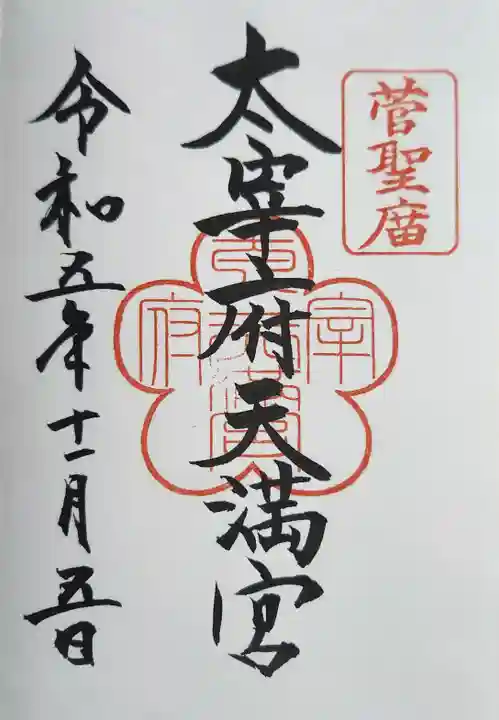 菅聖庿
太宰府天満宮
令和五年十一月五日